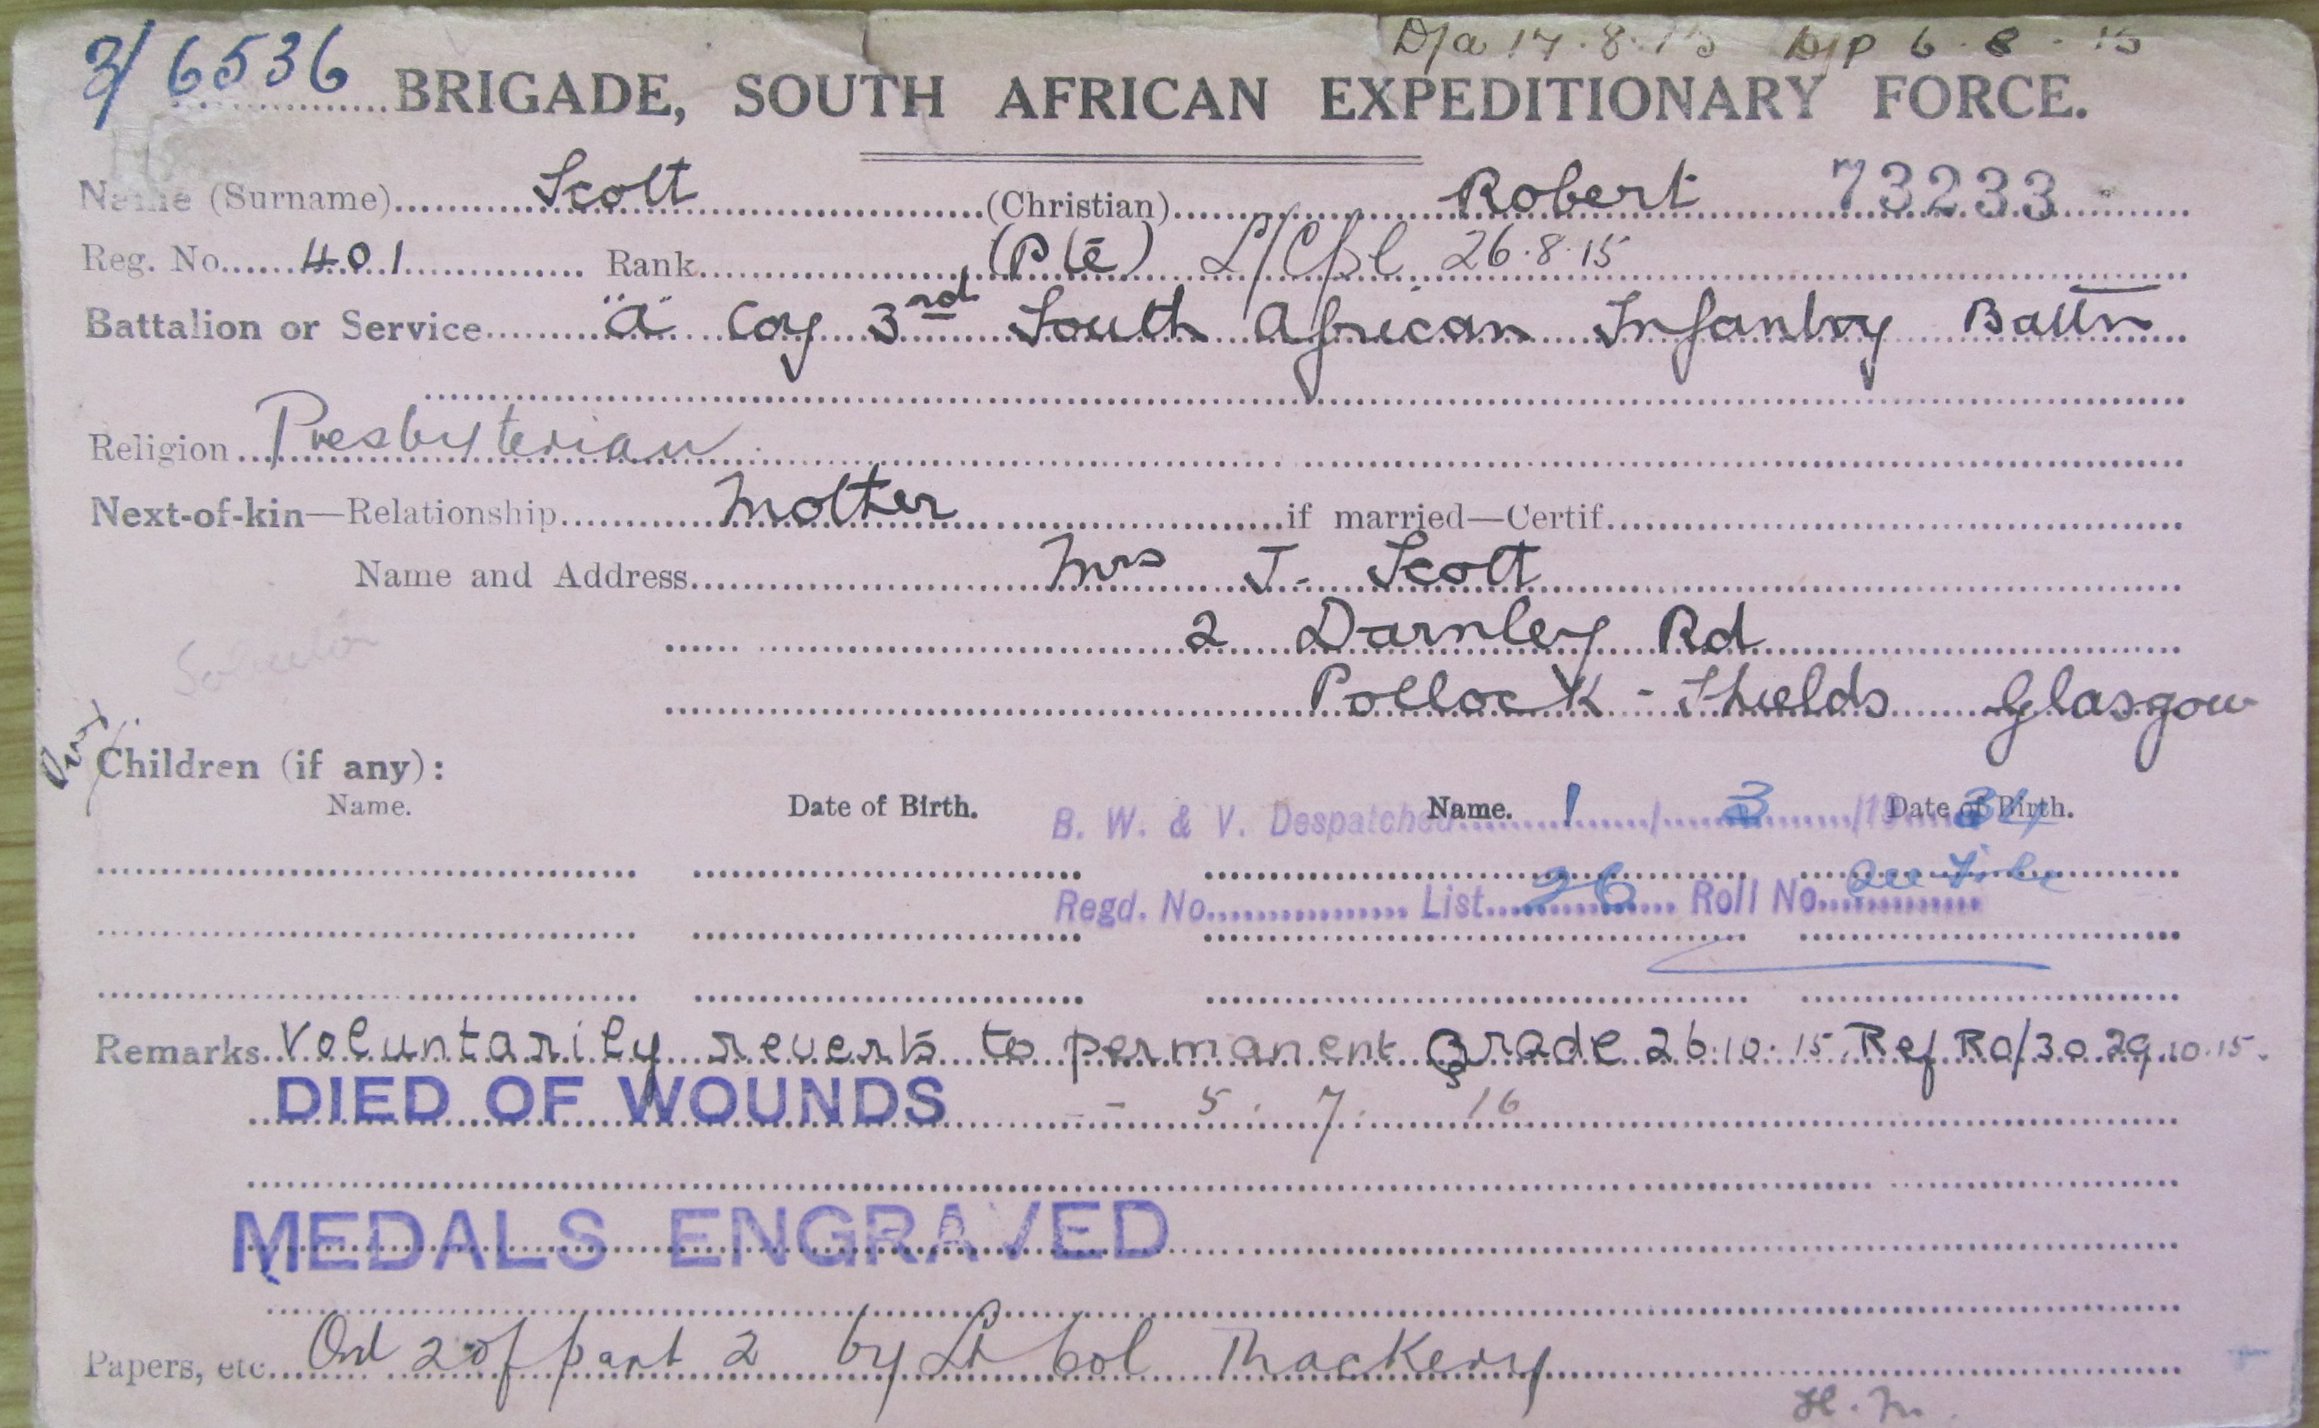 D/a 17.8.15 D/P 6.8.15
3/6536 BRIGADE, SOUTH AFRICAN EXPEDITIONARY FORCE.
Name (Surname) Scott (Christian) Robert 73233
Reg. No. 401 Rank (Pte) L/Cpl 26.8.15
Battalion or Service "A" Coy 3rd South African Infantry Battn
Religion Presbyterian
Next-of-kin—Relationship Mother if married—Certif.
Name and Address Mrs J. Scott
2 Darnley Rd
Pollock-Shields Glasgow
Children (if any):
Name. Date of Birth. Name. Date of Birth.
B. W. & V. Despatched 1/3/1934
Regd. No. List 26 Roll No.
Remarks Voluntarily reverts to permanent Grade 26.10.15. Ref RO/30 29.10.15.
DIED OF WOUNDS -- 5.7.16
MEDALS ENGRAVED
Papers, etc. Ord 2 of part 2 by Lt Col Thackery
H.M.